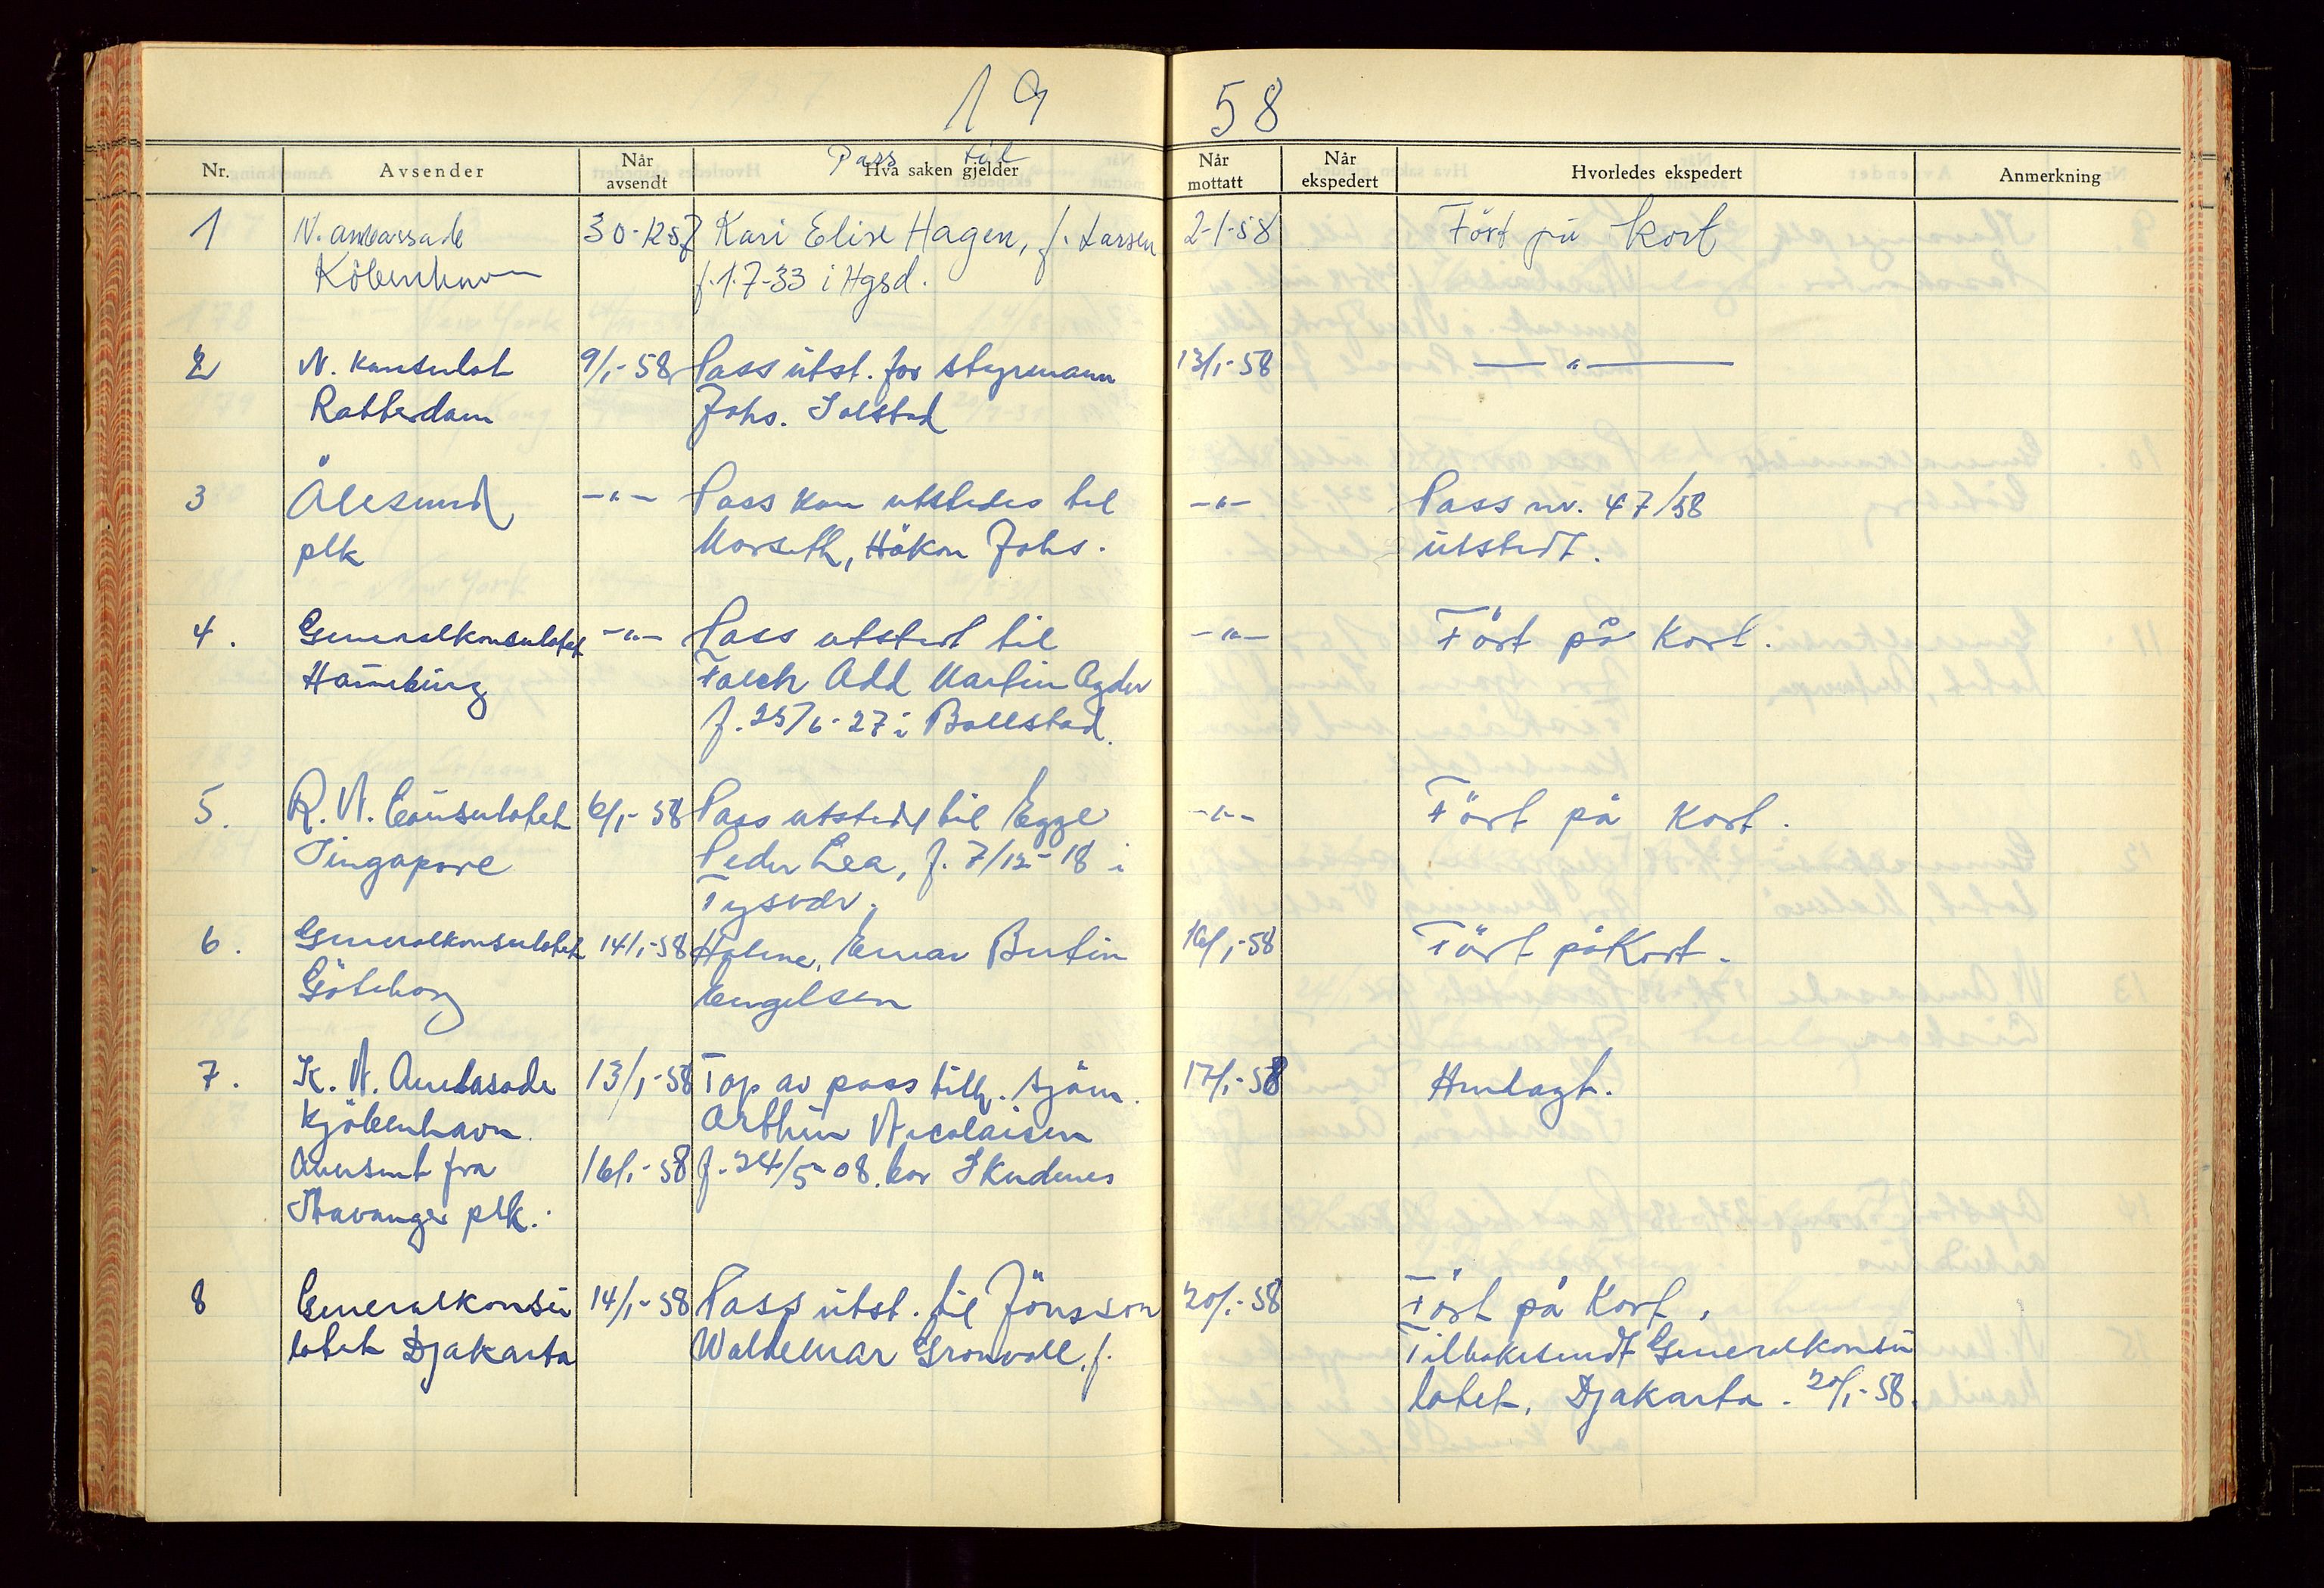 19 58
Pass til
Nr. Avsender Når avsendt Hva saken gjelder Når mottatt Når ekspedert Hvorledes ekspedert Anmerkning
1 N. ambassade 30-12-57 Kari Elise Hagen, f. Larsen 2-1-58 Ført på kort
København f. 1.7-33 i Hgsd.
2 N. Konsulat 9/1-58 Pass utst. for styrmann 13/1-58 — " —
Rotterdam Johs. Solstad
3 Ålesund — " — Pass kan utstedes til — " — Pass nr. 47/58
plk Morseth, Håkon Johs. utstedt.
4. Generalkonsulatet — " — Pass utstedt til — " — Ført på Kort.
Hamburg Falch Odd Martin Agder
f. 25/6-27 i Bollestad.
5. R. N. Consulatet 6/1-58 Pass utstedt til Egge — " — Ført på Kort.
Singapore Peder Lea, f. 7/12-18 i
Tysvær.
6. Generalkonsulatet 14/1-58 Holme, Einar Bertin 16/1-58 Ført på Kort.
Göteborg Engelsen
7. K. N. Ambasade 13/1-58 Tap av pass tilh. sjøm. 17/1-58 Henlagt.
Kjøbenhavn Arthur Nicolaisen
Oversent fra 16/1-58 f. 24/5-08. bor Skudenes
Stavanger plk.
8 Generalkonsu 14/1-58 Pass utst. til Jönsson 20/1-58 Ført på Kort,
latet Djakarta Waldemar Gronvall. f. Tilbakesendt Generalkonsu
latet, Djakarta. 20/1-58.